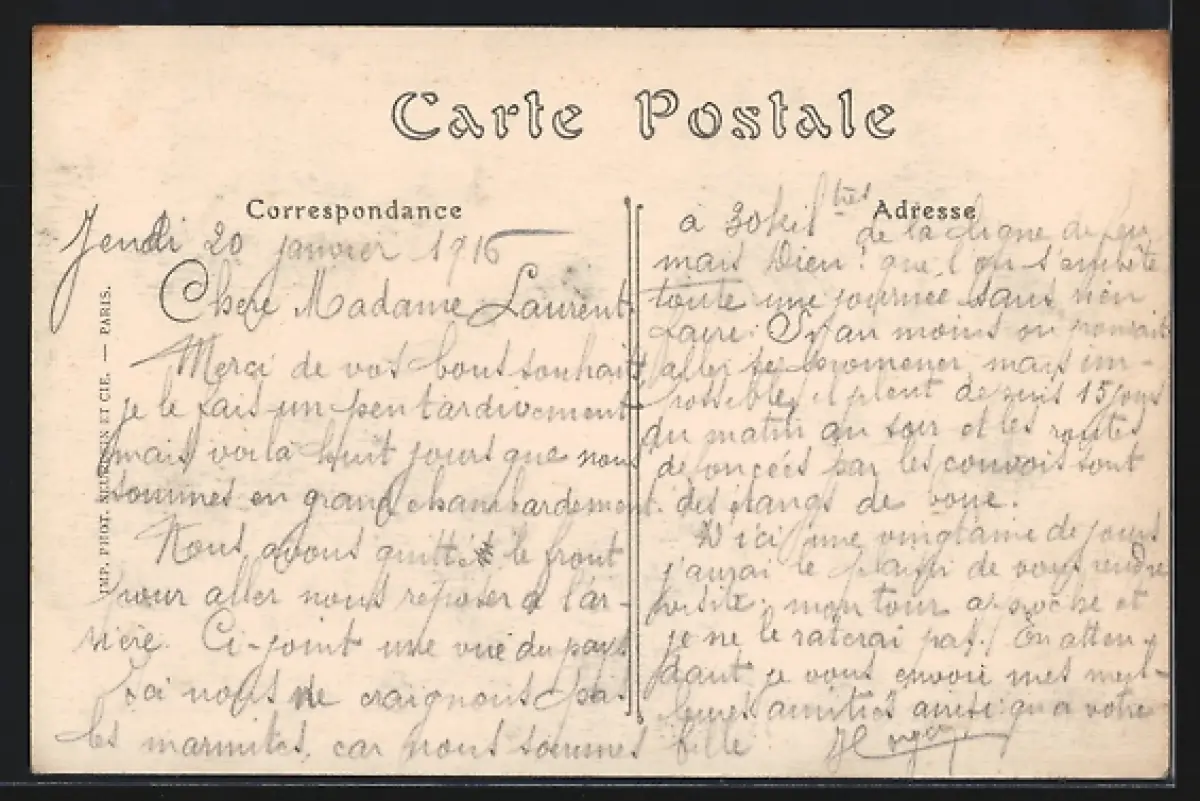 Carte Postale
Correspondance
Jeudi 20 janvier 1916
Chere Madame Laurent
Merci de vos bons souhaits
je le fais un peu tardivement
mais voila huit jours que nous
sommes en grand chambardement.
Nous avons quitté le front
pour aller nous reposer à l'ar-
rière. Ci-joint une vue du pays
Ici nous ne craignons pas
les marmites, car nous sommes
Adresse
à 30 kil tres
de la ligne de feu
mais Dieu! que l'on s'embête
toute une journée sans rien
faire. Si au moins on pouvait
aller se promener, mais im-
possible, il pleut depuis 15 jours
du matin au soir et les routes
défoncées par les convois sont
des étangs de boue.
D'ici une vingtaine de jours
j'aurai le plaisir de vous rendre
visite; mon tour approche et
je ne le raterai pas! En atten-
dant je vous envoie mes meil-
leures amitiés ainsi qu'a votre
fille
IMP. PHOT. NEURDEIN ET CIE. — PARIS.